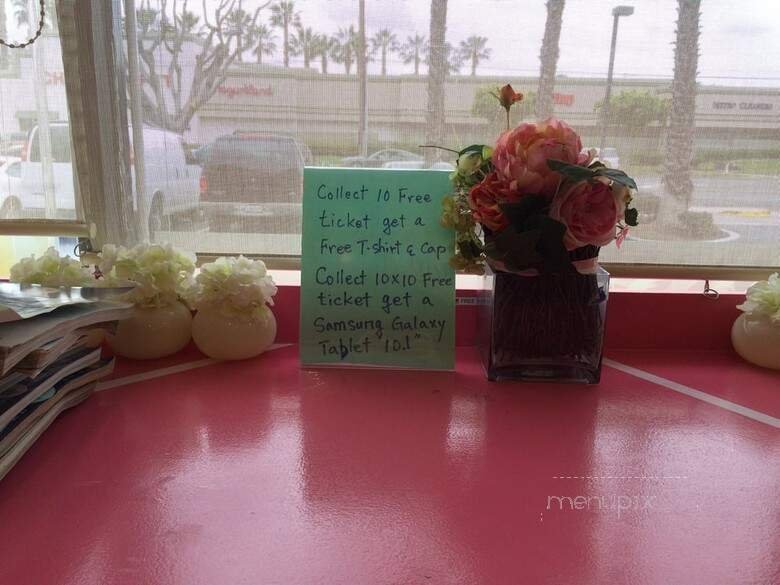 Collect 10 Free
ticket get a
Free T-shirt & Cap
Collect 10x10 Free
ticket get a
Samsung Galaxy
Tablet "10.1"
menupix